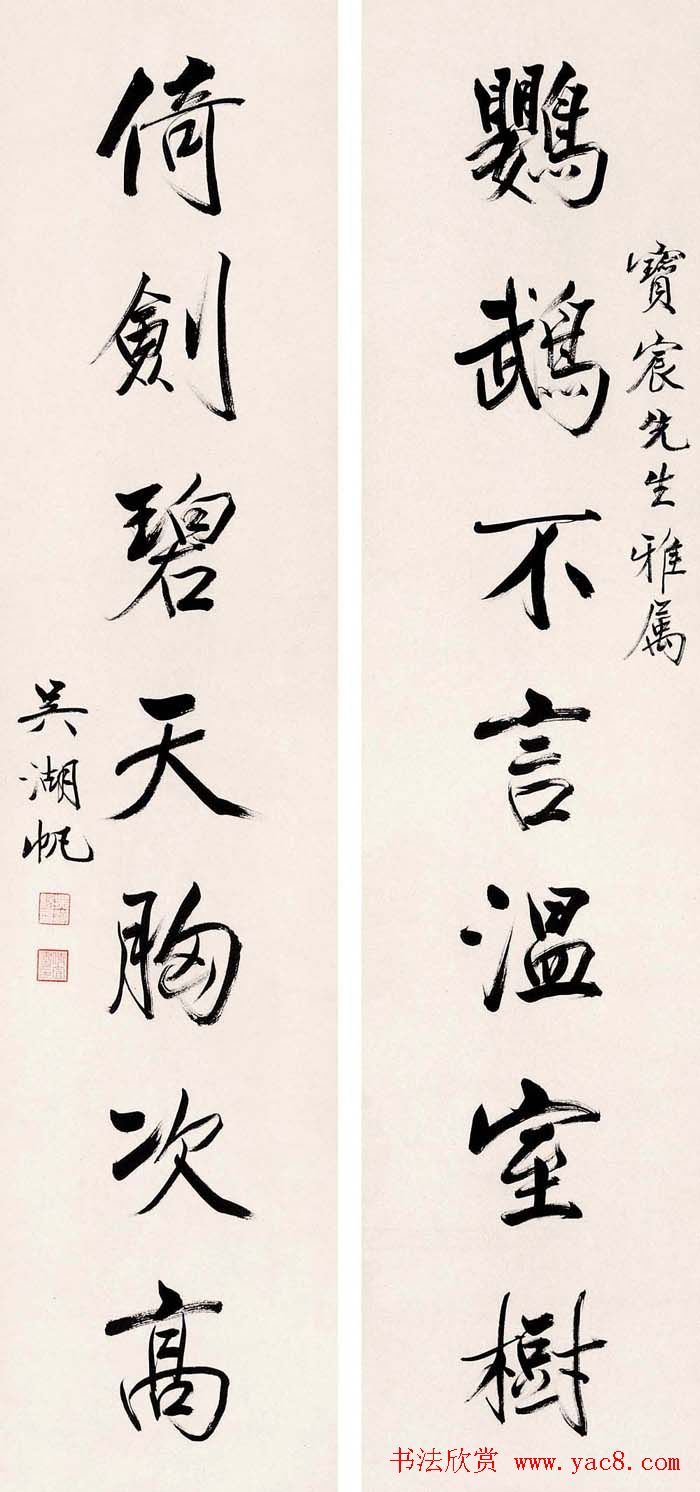 寶宸先生雅屬
鸚鵡不言溫室樹
倚劍碧天胸次高
吳湖帆
书法欣赏 www.yac8.com